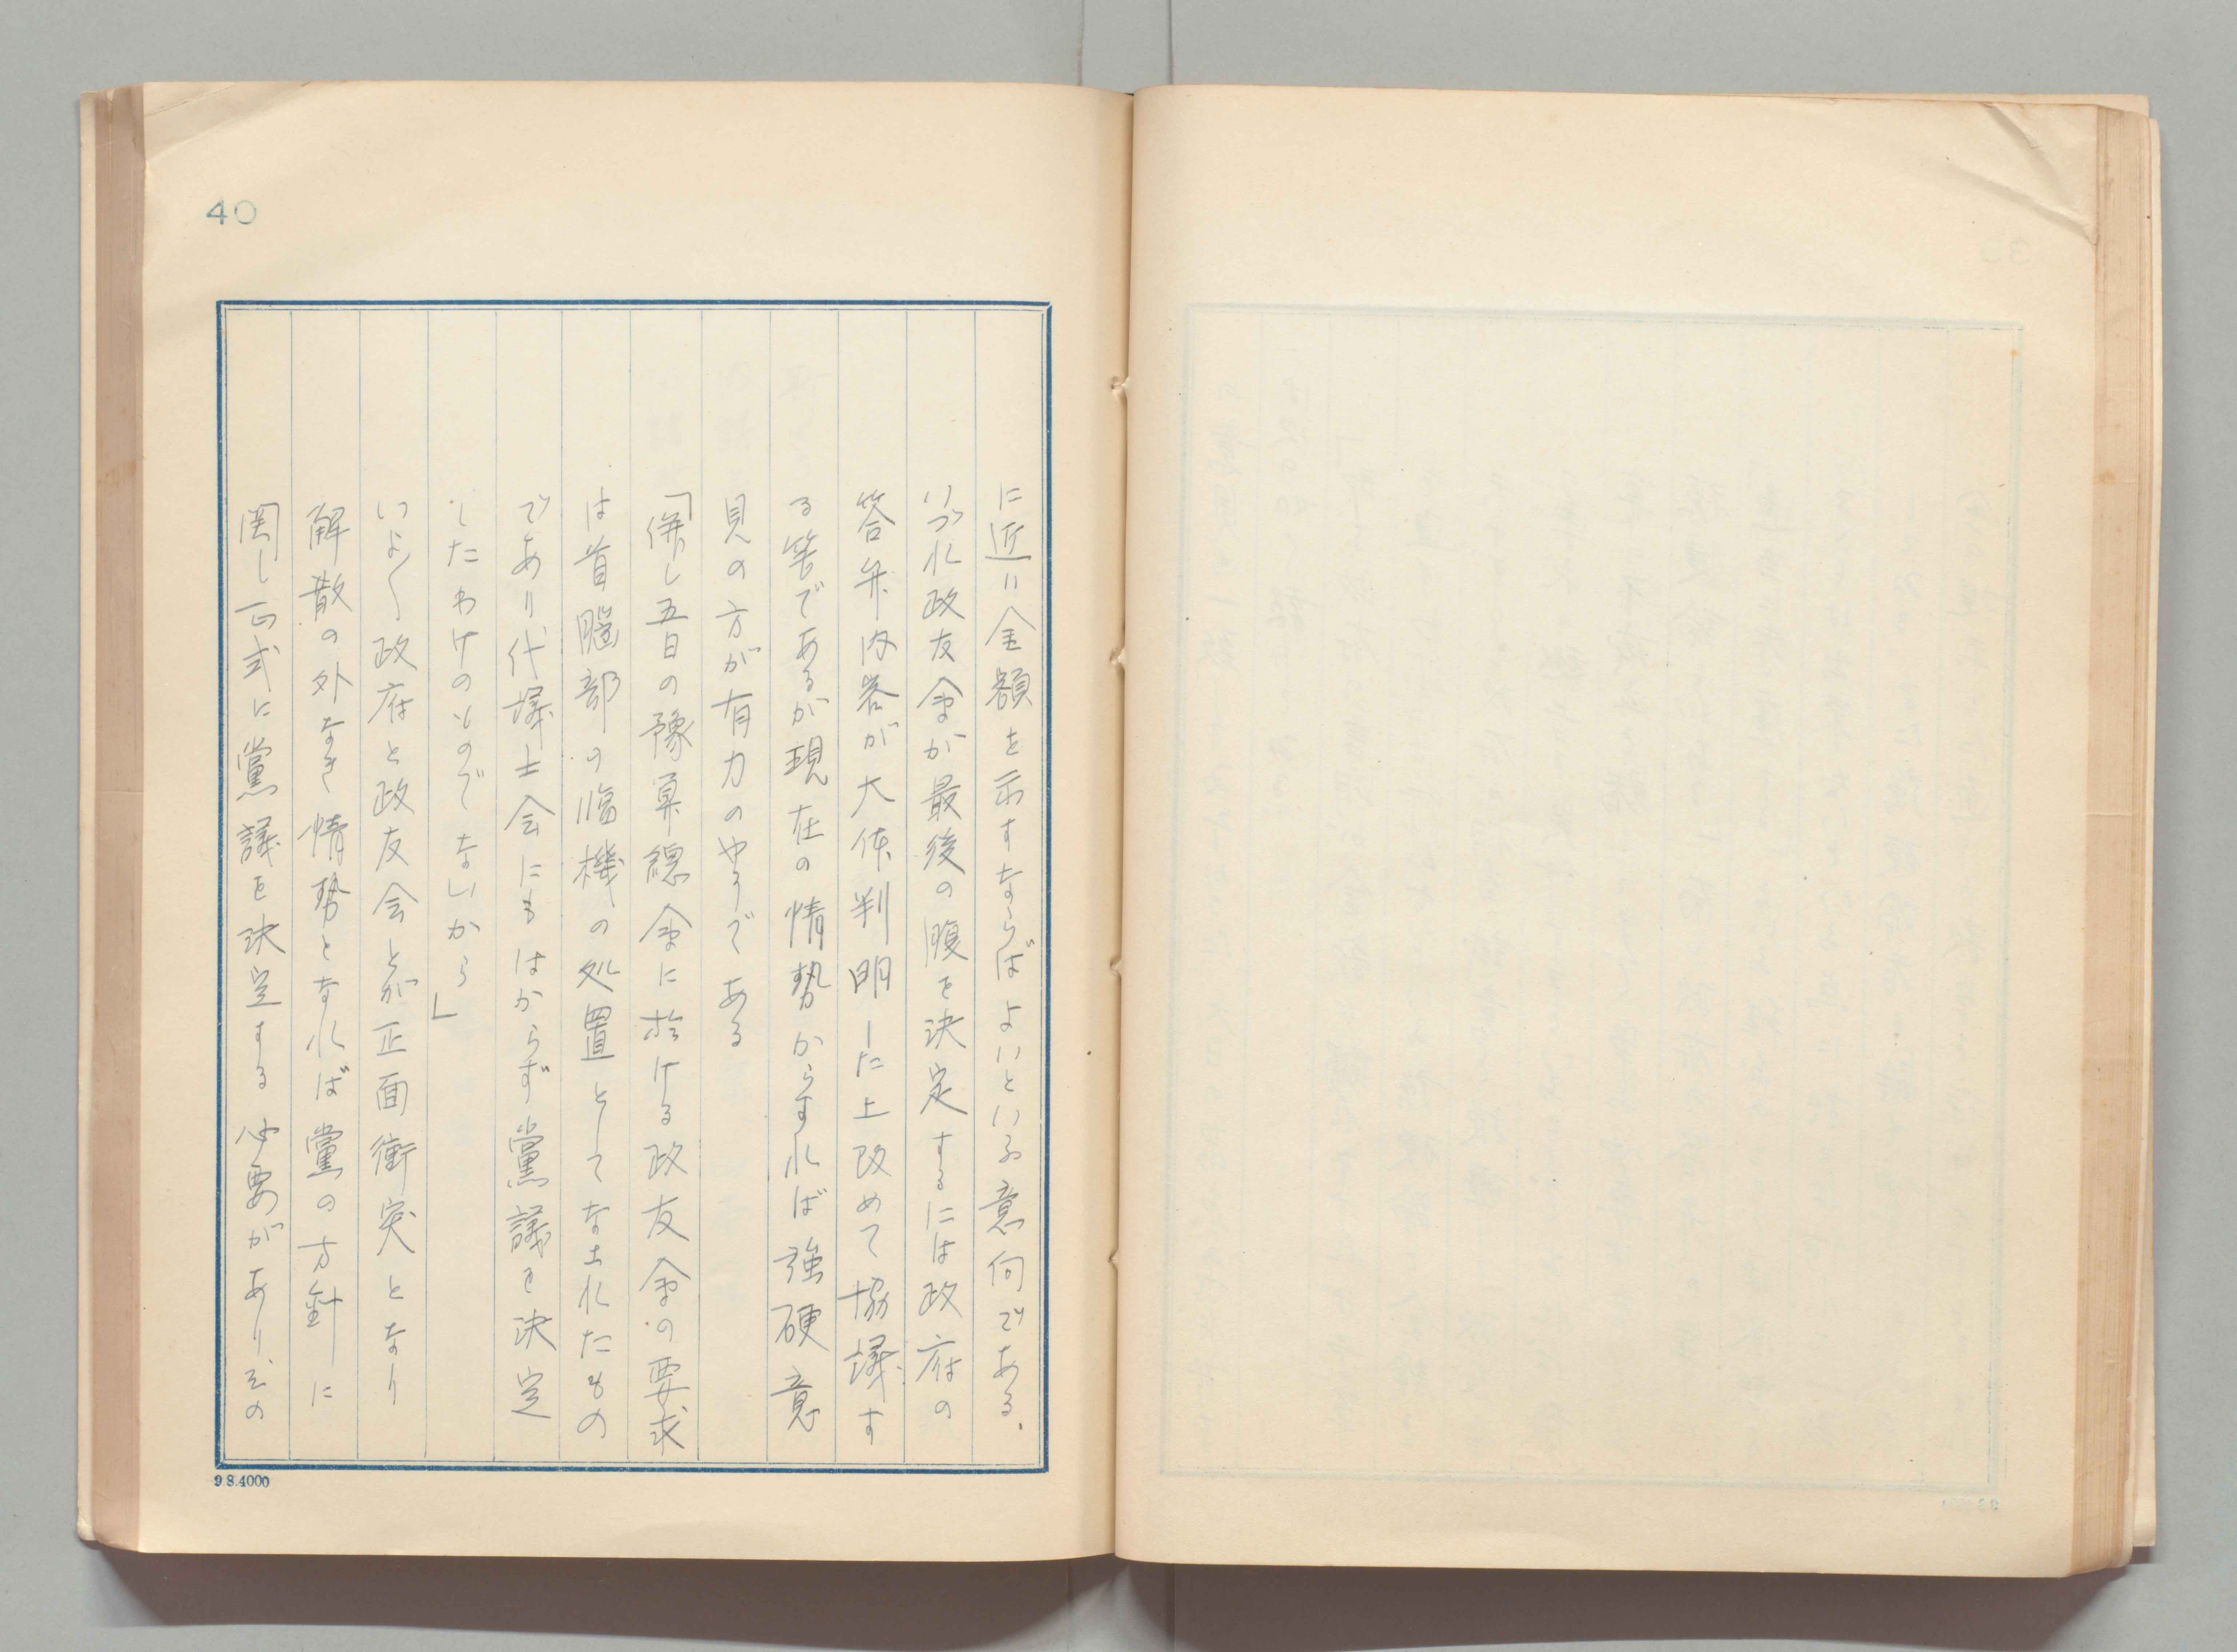 40
に近い金額を示すならばよいといふ意向である、
いづれ政友会が最後の腹を決定するには政府の
答弁内容が大体判明した上改めて協議す
る筈であるが現在の情勢からすれば強硬意
見の方が有力のやうである
「併し五日の豫算總会に於ける政友会の要求
は首腦部の臨機の処置としてなされたもの
であり代議士会にもはからず黨議を決定
したわけのものでないから」
いよ〱政府と政友会とが正面衝突となり
解散の外なき情勢となれば黨の方針に
関し正式に黨議を決定する必要がありその
9.8.4000